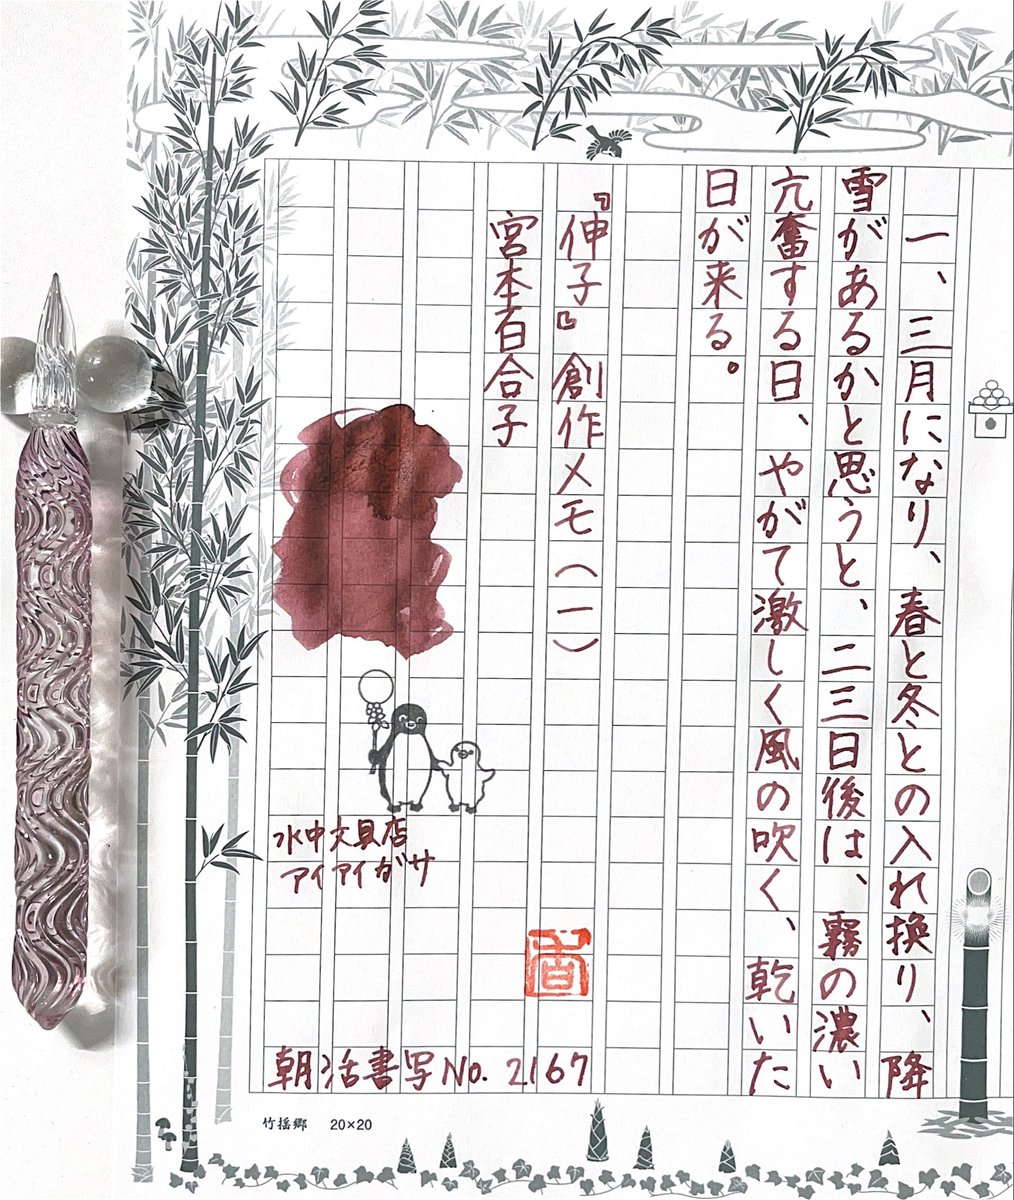 一、三月になり、春と冬との入れ換り、降
雪があるかと思うと、二三日後は、霧の濃い
亢奮する日、やがて激しく風の吹く、乾いた
日が来る。
『伸子』創作メモ（一）
宮本百合子
水中文具店
アイアイガサ
朝活書写No. 2167
竹揺郷 20×20